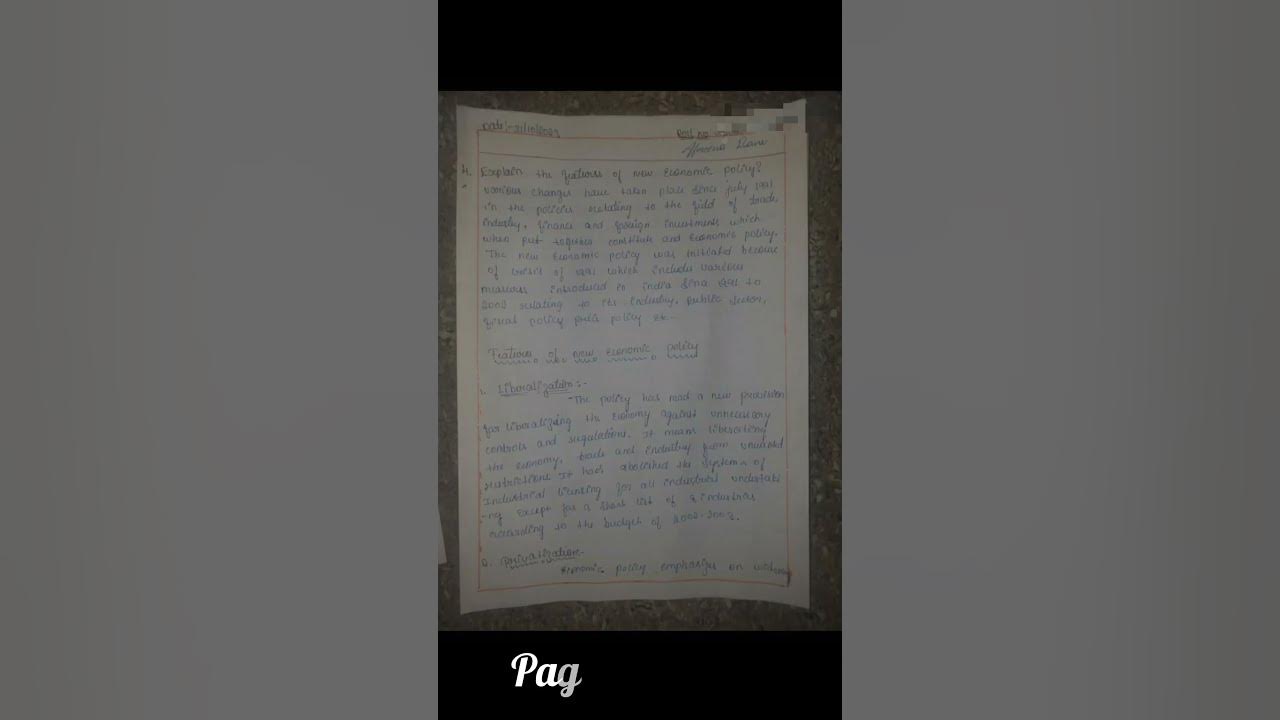 4. Explain the features of new Economic policy?
various changes have taken place since july 1991
in the policies relating to the field of trade,
industry, finance and foreign investments which
when put together constitute and Economic policy.
The new Economic policy was initiated because
of crisis of 1991 which include various
measures introduced in india since 1991 to
2002 relating to its industry, public sector,
fiscal policy policy etc...
Features of new Economic policy
1. Liberalization :-
-The policy has mad a new provision
for liberalizing the economy against unnecessary
controls and regulations. it means liberating
the economy, trade and industry from unwanted
restrictions It has abolished the system of
Industrial licensing for all industrial undertaki
-ng except for a short list of industries
according to the budget of 2002-2003.
2. Privatization:-
Economic policy emphasizes on
Pag